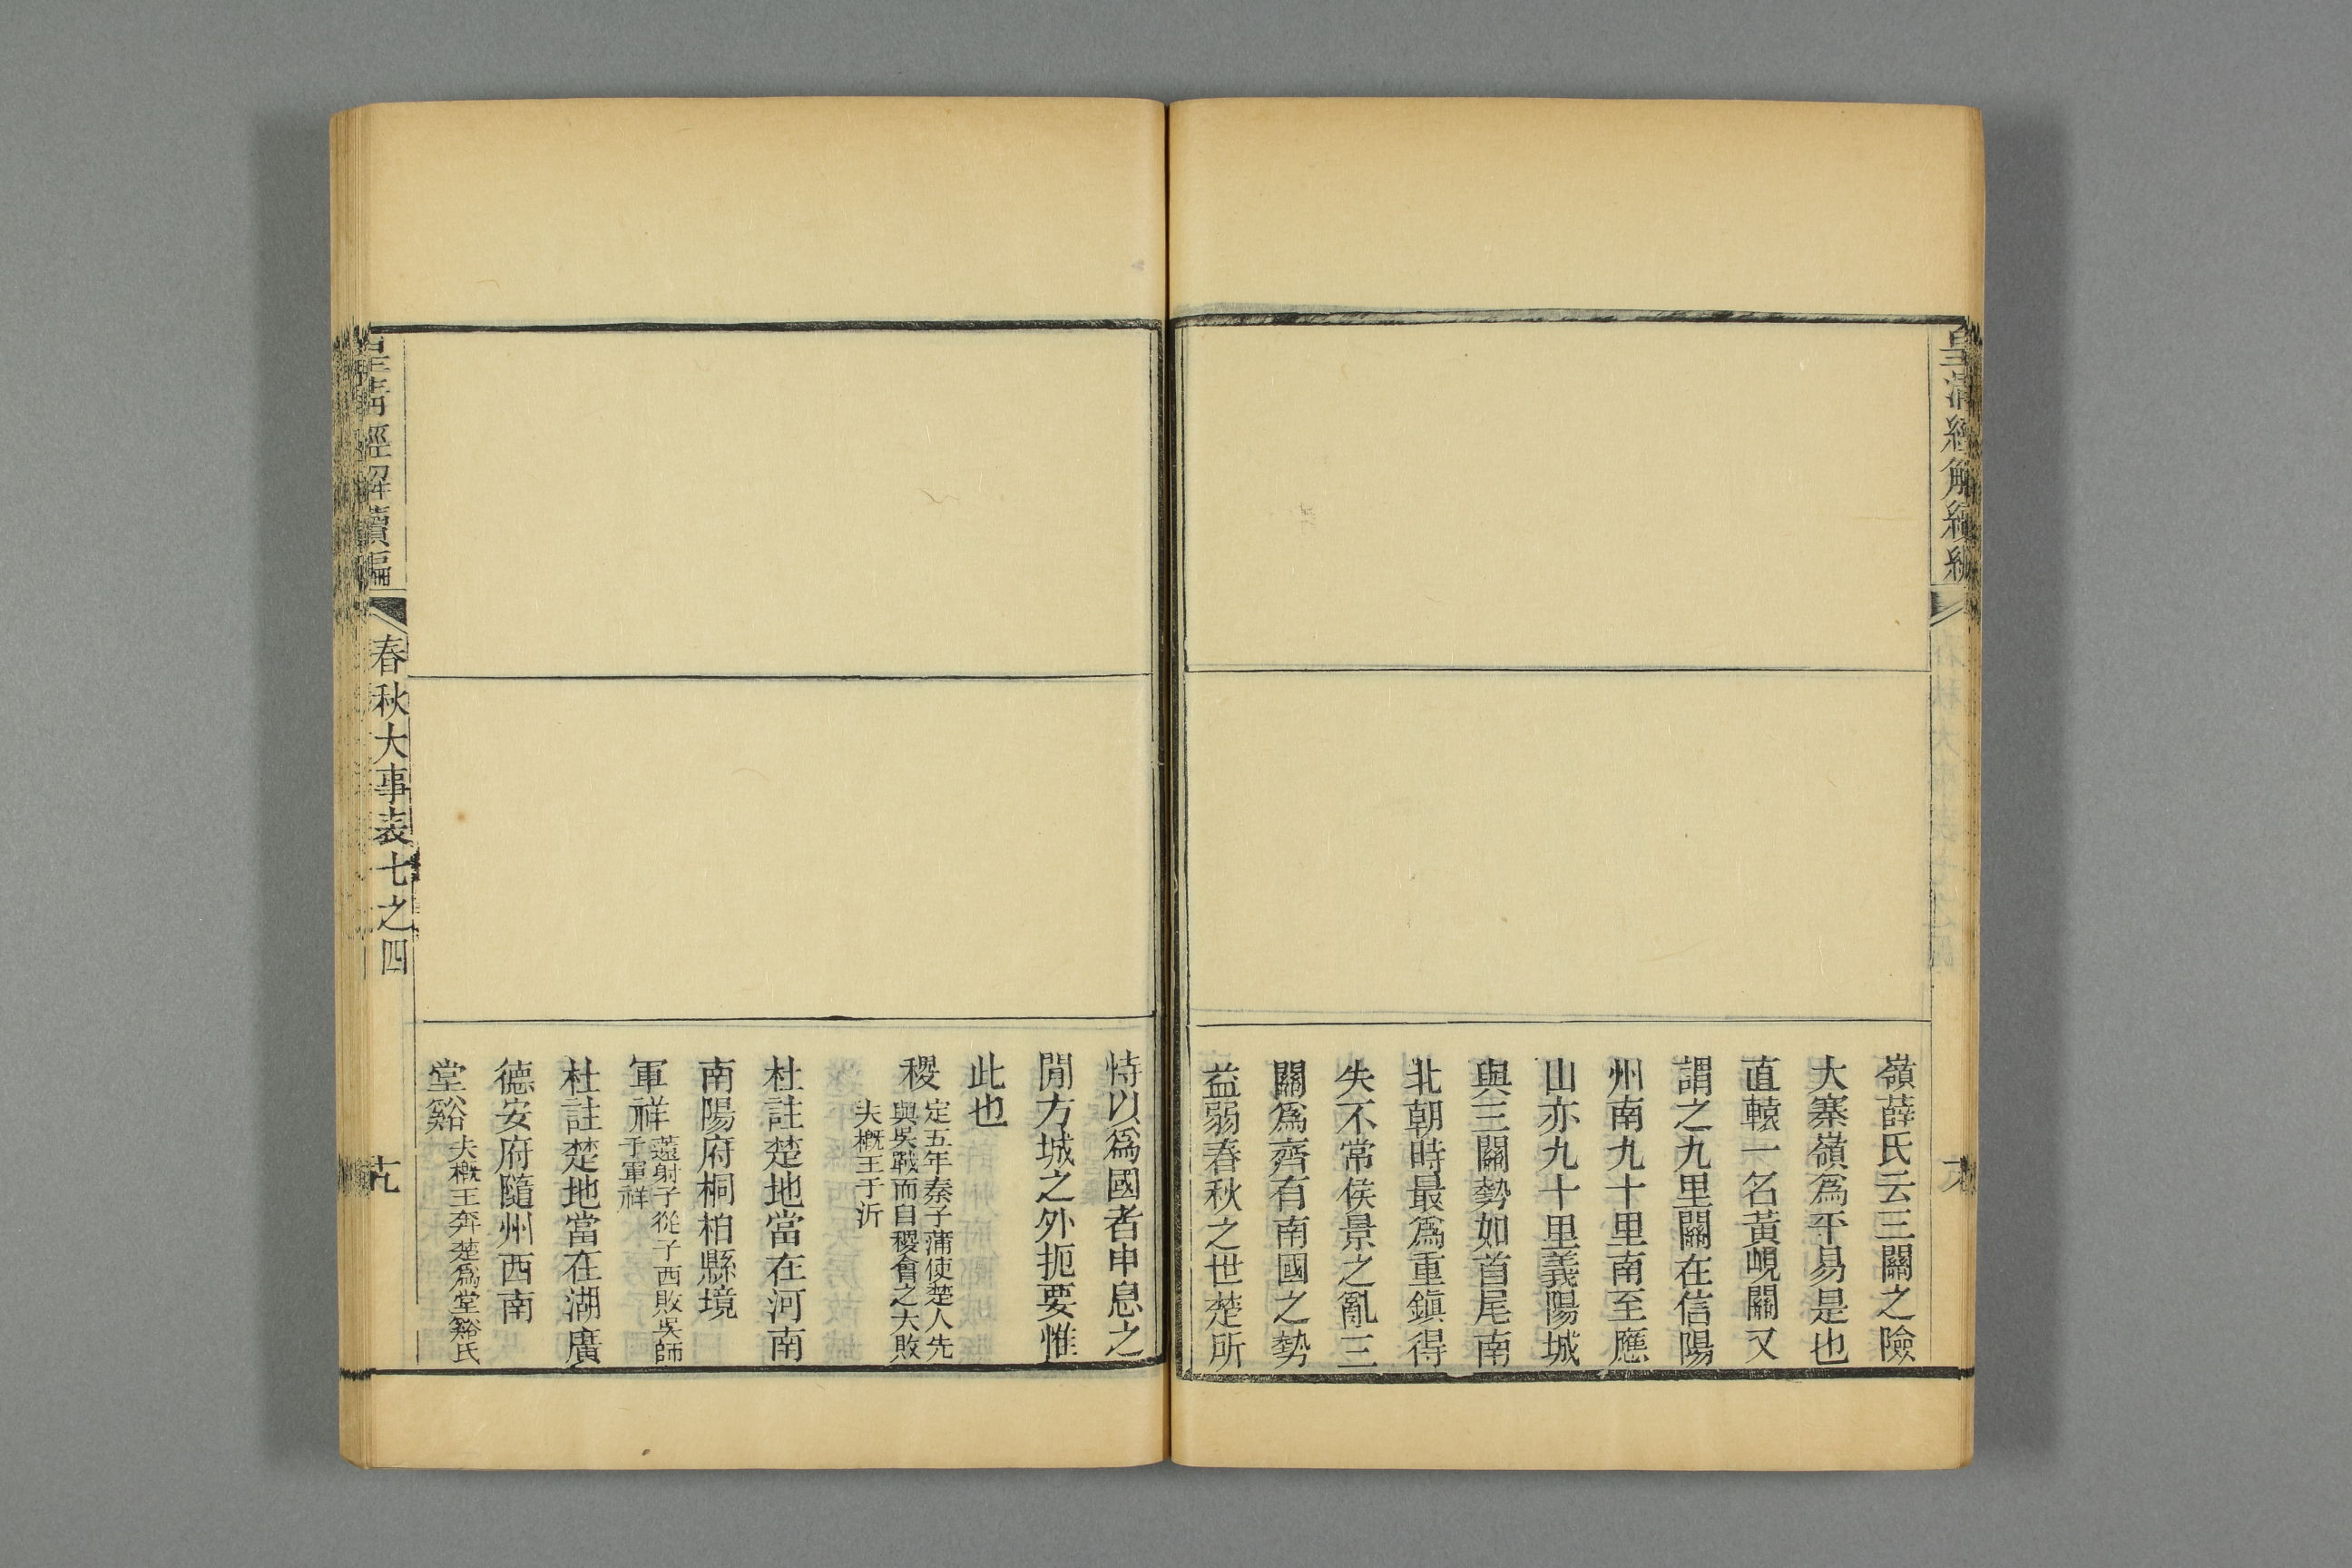 皇清經解續編
嶺薛氏云三關之險
大寨嶺爲平易是也
直轅一名黃峴關又
謂之九里關在信陽
州南九十里南至應
山亦九十里義陽城
與三關勢如首尾南
北朝時最爲重鎭得
失不常侯景之亂三
關爲齊有南國之勢
益弱春秋之世楚所
恃以爲國者申息之
閒方城之外扼要惟
此也
稷 定五年秦子蒲使楚人先
與吳戰而自稷會之大敗
夫槪王于沂
杜註楚地當在河南
南陽府桐柏縣境
軍祥 薳射子從子西敗吳師
于軍祥
杜註楚地當在湖廣
德安府隨州西南
堂谿 夫槪王奔楚爲堂谿氏
皇清經解續編
春秋大事表七之四